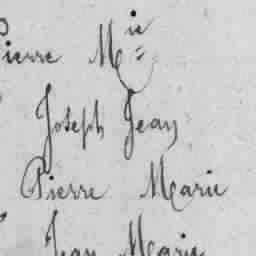 Pierre Mie
Joseph Jean
Pierre Marie
Jean Marie